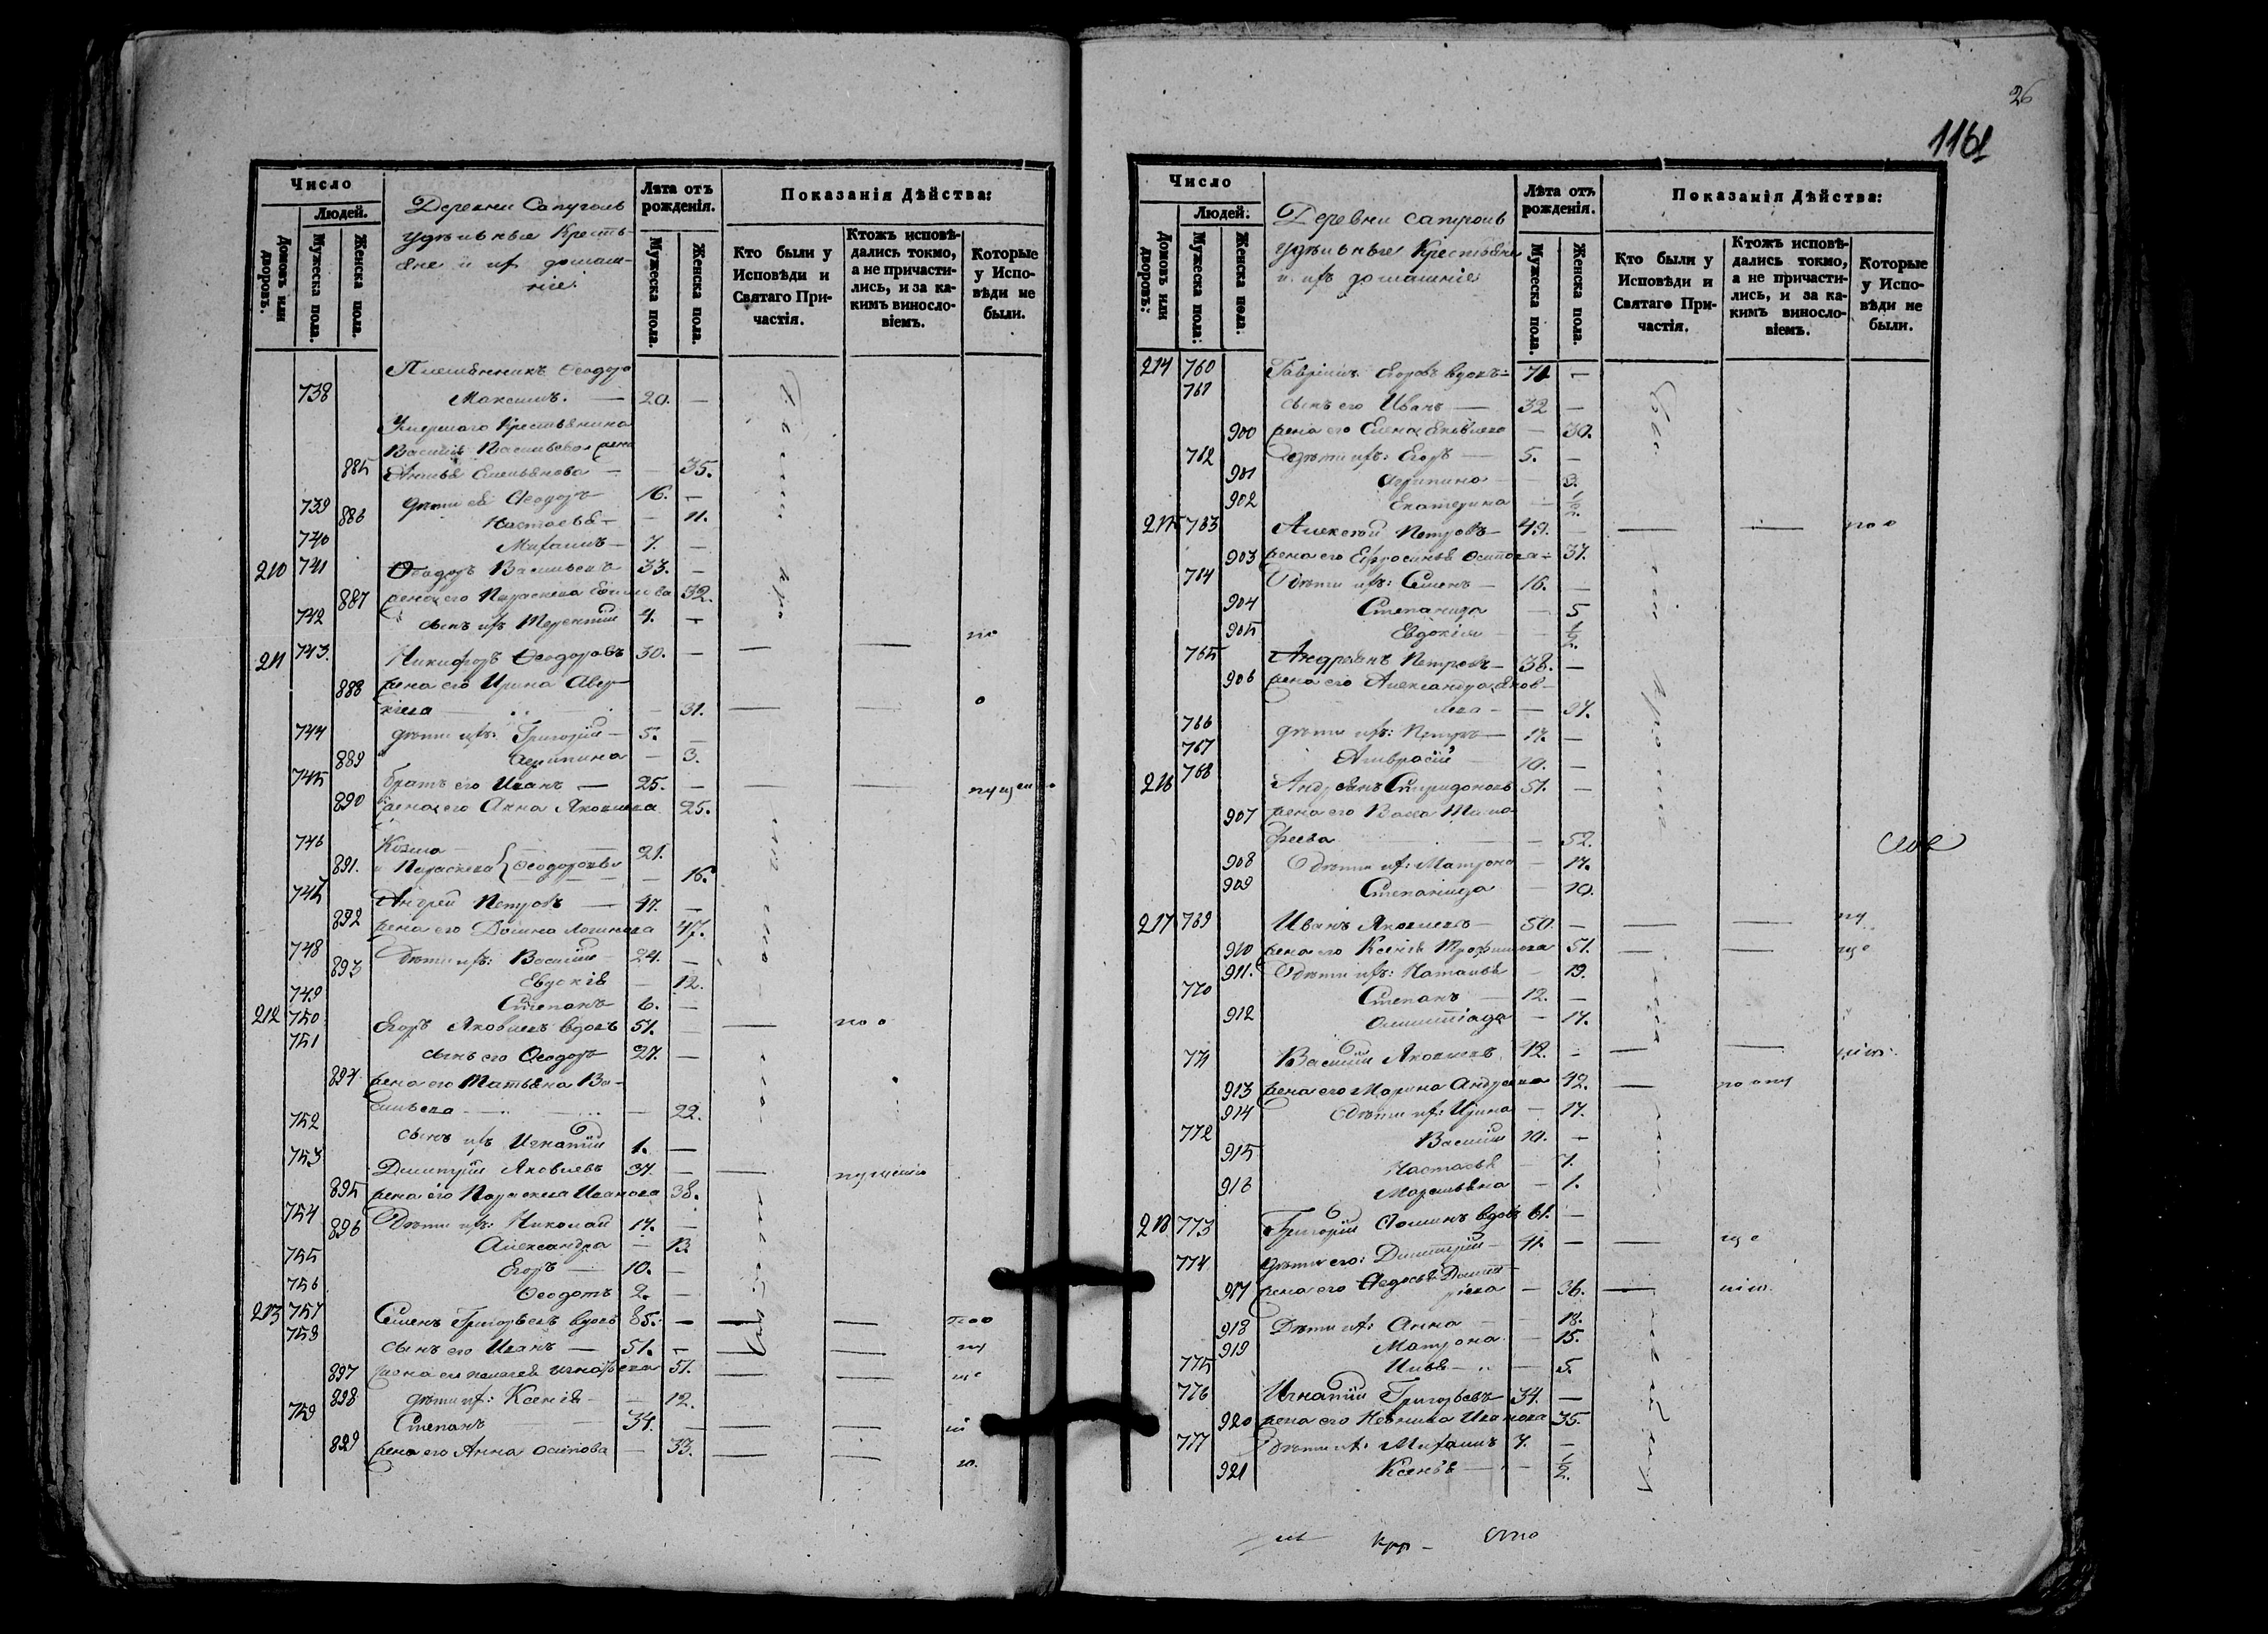 26
1161
Число
Людей.
Домовъ или дворовъ.
Мужеска пола.
Женска пола.
Деревни Сапуголь
удѣльные Кресть-
яне и их домаш-
ніе
Лѣта отъ рожденія.
Мужеска пола.
Женска пола.
Показанія Дѣйства:
Кто были у Исповѣди и Святаго При-частія.
Ктожъ исповѣ-дались токмо, а не причасти-лись, и за ка-кимъ винословіемъ.
Которые у Испо-вѣди не были.
Племянникъ Ѳеодора
738 Максимъ. — 20. —
Умершаго Крестьянина
Василія Васильева жена
885 Емельянова — — 35.
739 дѣти ея Ѳеодоръ 16. —
886 Настасья — — 11.
740 Михаилъ — 7. —
210 741 Ѳеодоръ Васильевъ 33. —
887 жена его Параскева 32.
742 сынъ их Терентій 4. —
211 743. Никифоръ Ѳеодоровъ 30. — — —
888 жена его Ирина Авер-
кіева — 31. — —
744 дѣти ихъ: Григорій — 5. —
889 Агрипина — 3.
745 братъ его Иванъ — 25. — — —
890 жена его Анна Яковлева 25.
746 Козма 21.
891. и Параскева Ѳеодоровы — 16.
747 Андрей Петровъ — 47. —
892 жена его Домна Логинова 47.
748 Дѣти ихъ: Василій 24. —
893 Евдокія — 12.
749 Степанъ 6. —
212 750 Егоръ Яковлевъ вдовъ 51. — —
751 сынъ его Ѳеодоръ 27. —
894 жена его Татьяна Ва-
сильева — 22.
752 сынъ ихъ Игнатій 1. —
753 Димитрій Яковлевъ 37. — —
895 жена его Параскева Иванова 38.
754 Дѣти ихъ: Николай 17. —
896 Александра — 13.
755 Егоръ — 10. —
756 Ѳеодотъ 2. —
213 757 Семенъ Григорьевъ вдовъ 85. — — —
758 сынъ его Иванъ — 51. — — —
897 жена его Пелагея Игнатьева 51. — —
898 дѣти их: Ксенія — — 12.
759 Степанъ 34. — — —
899 жена его Анна Осипова — 33. — —
Число
Людей.
Домовъ или дворовъ:
Мужеска пола:
Женска пола:
Деревни Сапуголь
удѣльные Крестьяне
и ихъ домашніе
Лѣта отъ рожденія.
Мужеска пола.
Женска пола.
Показанія Дѣйства:
Кто были у Исповѣди и Святаго При-частія.
Ктожъ исповѣ-дались токмо, а не причасти-лись, и за ка-кимъ винословіемъ.
Которые у Испо-вѣди не были.
214 760 Гавріилъ Егоровъ вдовъ 71 —
761 сынъ его Иванъ — 32 —
900 жена его Елена Яковлева — 30.
762 дѣти ихъ: Егоръ — 5. —
901 Агрипина — 3.
902 Екатерина — 1/2.
215 763 Алексѣй Петровъ — 42. — — —
903 жена его Ефросинья Осипова — 37.
764 Дѣти ихъ: Семенъ — 16. —
904 Степанида — 5
905 Евдокія — 1/2.
765 Андреянъ Петровъ — 38. —
906 жена его Александра Яков-
лева — — 37.
766 дѣти ихъ: Петръ — 17. —
767 Амвросій 10. —
216 768 Андреянъ Спиридоновъ 51. —
907 жена его Васса Тимо
феева — 52.
908 Дѣти их: Матрона — 17.
909 Степанида — 10.
217 769 Иванъ Яковлевъ — 50. — — —
910 жена его Ксенія Трофимова 51. — —
911. Дѣти ихъ: Наталья — 19.
770 Степанъ — 12. —
912 Олимпіада — 17.
771 Василій Яковлевъ 42. — — —
913 жена его Марина Андреева 42. —
914 Дѣти их: Ирина — 17.
772 Василій 10. —
915 Настасья — 7.
916 Маремьяна — 1.
218 773 Григорій Ѳоминъ вдовъ 61. —
774 дѣти его: Димитрій — 41. — —
917 жена его Ѳедосья — 36. —
918 Дѣти их: Анна — — 18.
919 Матрона — 15.
775 Илья — — 5.
776 Игнатій Григорьевъ 34. —
920 жена его Неонила Иванова 35.
777 Дѣти их: Михаилъ 7. —
921 Ксенья — — 1/2.